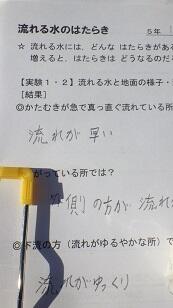 流れる水のはたらき
5年
☆ 流れる水には、どんな はたらきがある
増えると、はたらきは どうなるのだろ
【実験1・2】流れる水と地面の様子・
[結果]
◎かたむきが急で真っ直ぐ流れている所
流れが早い
がっている所では?
側の方が 流れ
◎下流の方(流れがゆるやかな所)で
流れがゆっくり